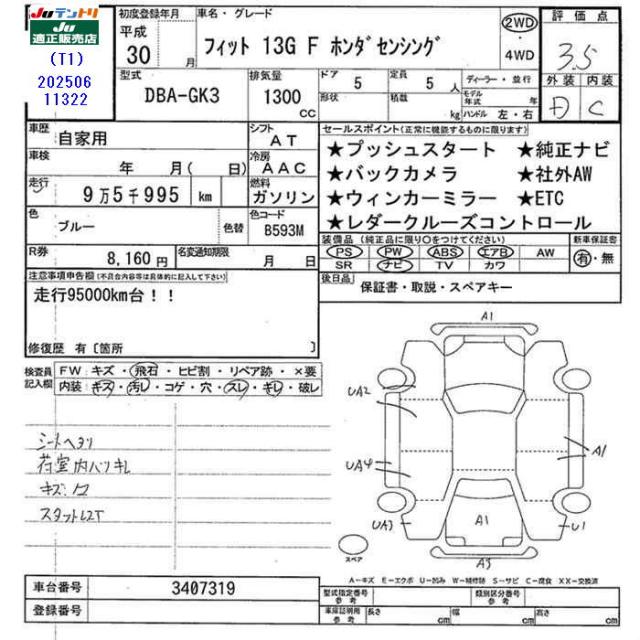 JUテントリ
JU
適正販売店
(T1)
202506
11322
初度登録年月
平成
30 月
車名・グレード
フィット 13G F ホンダセンシング
2WD
・
4WD
評価点
3.5
外装 内装
D C
型式
DBA-GK3
排気量
1300
cc
ドア
5
形状
定員
5 人
積載
kg
ディーラー・並行
モデル
年式 年
ハンドル 左・右
車歴
自家用
シフト
AT
車検
年 月(日)
冷房
AAC
走行
9万5千995 km
燃料
ガソリン
色
ブルー
色替
色コード
B593M
R券
8,160円
名変通知期限
月 日
セールスポイント(正常に機能するものに限ります)
★プッシュスタート ★純正ナビ
★バックカメラ ★社外AW
★ウィンカーミラー ★ETC
★レダークルーズコントロール
装備品(純正品に限り○をつけてください)
PS・PW・ABS・エアB・AW
SR ナビ・TV カワ
新車保証書
有・無
後日品
保証書・取説・スペアキー
注意事項申告欄(不具合内容等は具体的に記入して下さい)
走行95000km台!!
修復歴 有〔箇所 〕
検査員
記入欄
FW キズ・飛石・ヒビ割・リペア跡・×要
内装 キズ・汚レ・コゲ・穴・スレ・キレ・破レ
シートヘタリ
荷室内バリキレ
キズ・凹
A1
UA2
UA4
UA3
A1
A1
U1
A3
スペア
A-キズ E-エクボ U-凹み W-補修跡 S-サビ C-腐食 XX-交換済
車台番号
3407319
登録番号
型式指定番号
参考
類別区分番号
参考
車庫証明用
参考
長さ cm
幅 cm
高さ cm